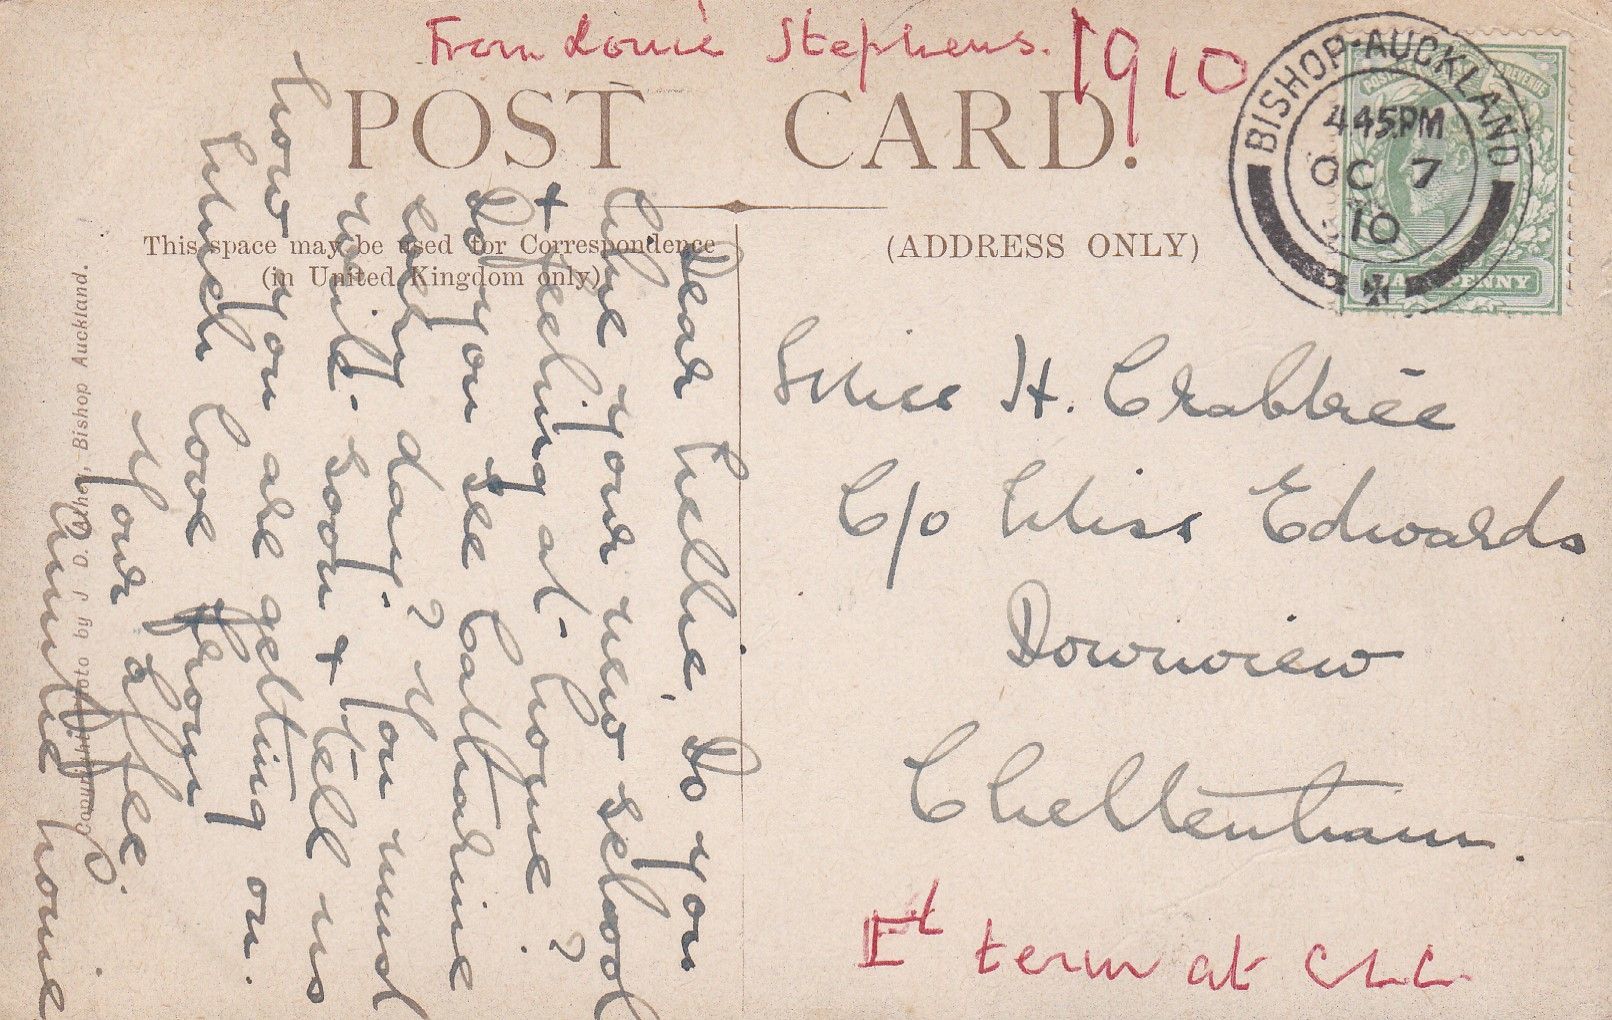 From Louie Stephens. 1910
POST CARD.
This space may be used for Correspondence
(in United Kingdom only)
(ADDRESS ONLY)
BISHOP-AUCKLAND
4 45 PM
OC 7
10
HALFPENNY
Miss H. Crabtree
C/o Miss Edwards
Downview
Cheltenham.
1st term at CLC.
Dear Nellie, Do you
like your new school
+ feeling at home?
Do you see Catharine
every day? You must
write soon + tell us
how you are getting on.
Much love from
Your affec.
Auntie Louie
Copyright Photo by J. D. Bishop Auckland.